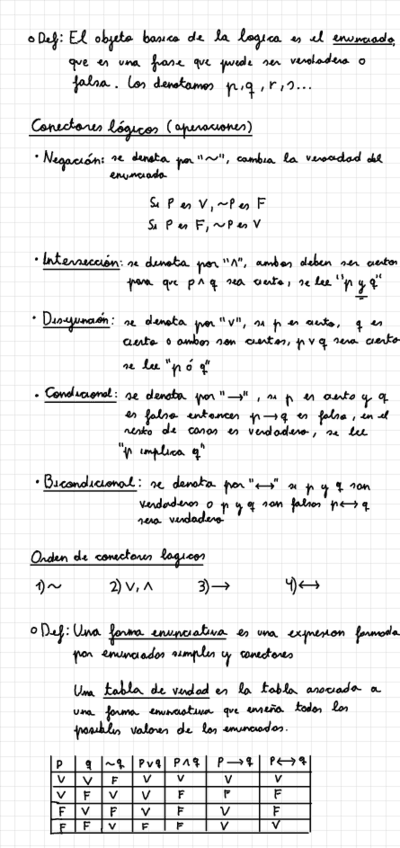 o Def: El objeto basico de la logica es el enunciado,
que es una frase que puede ser verdadera o
falsa. Los denotamos p,q,r,s...
Conectores lógicos (operaciones)
· Negación: se denota por "~", cambia la veracidad del
enunciado
Si P es V, ~P es F
Si P es F, ~P es V
· Intersección: se denota por "∧", ambos deben ser ciertos
para que p∧q sea cierto, se lee "p y q"
· Disyunción: se denota por "∨", si p es cierto, q es
cierto o ambos son ciertos, p∨q sera cierto
se lee "p ó q"
· Condicional: se denota por "→", si p es cierto y q
es falso entonces p→q es falso, en el
resto de casos es verdadero, se lee
"p implica q"
· Bicondicional: se denota por "↔" si p y q son
verdaderos o p y q son falsos p↔q
sera verdadero
Orden de conectores logicos
1) ~ 2) ∨, ∧ 3) → 4) ↔
o Def: Una forma enunciativa es una expresion formada
por enunciados simples y conectores
Una tabla de verdad es la tabla asociada a
una forma enunciativa que enseña todos los
posibles valores de los enunciados.
P q ~q P∨q P∧q P→q P↔q
V V F V V V V
V F V V F F F
F V F V F V F
F F V F F V V